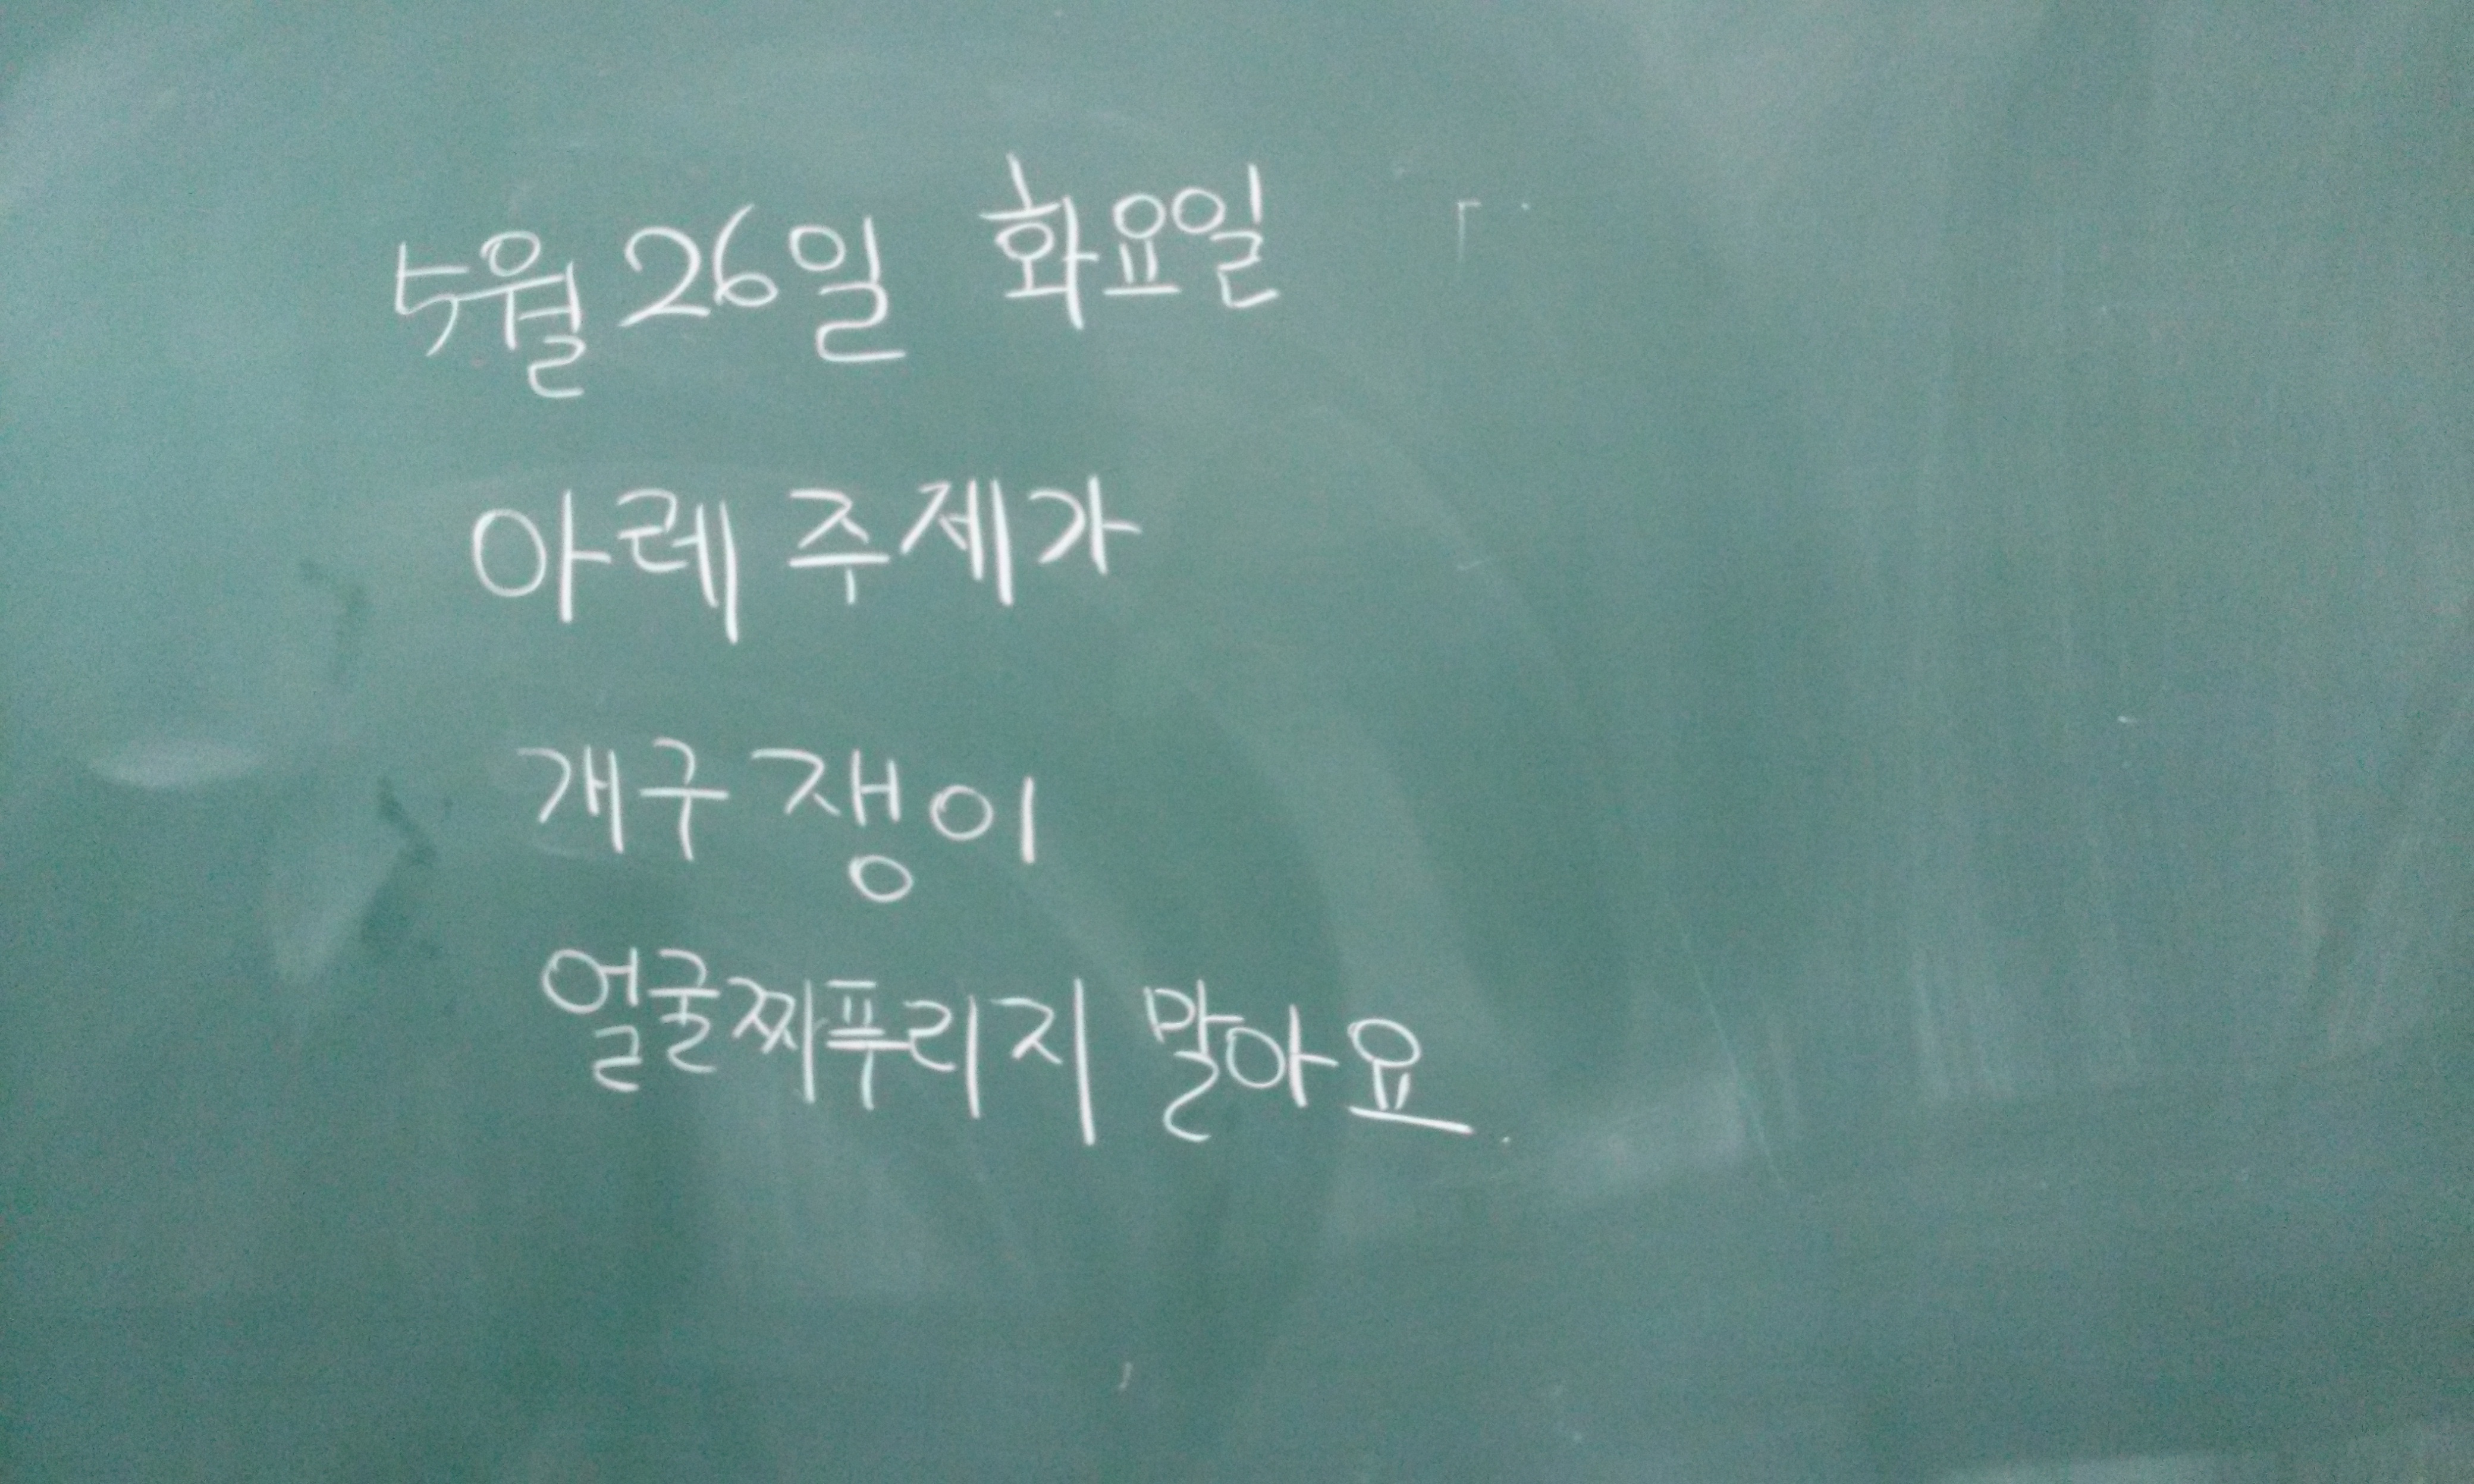 5월 26일 화요일
아레 주제가
개구쟁이
얼굴찌푸리지 말아요.